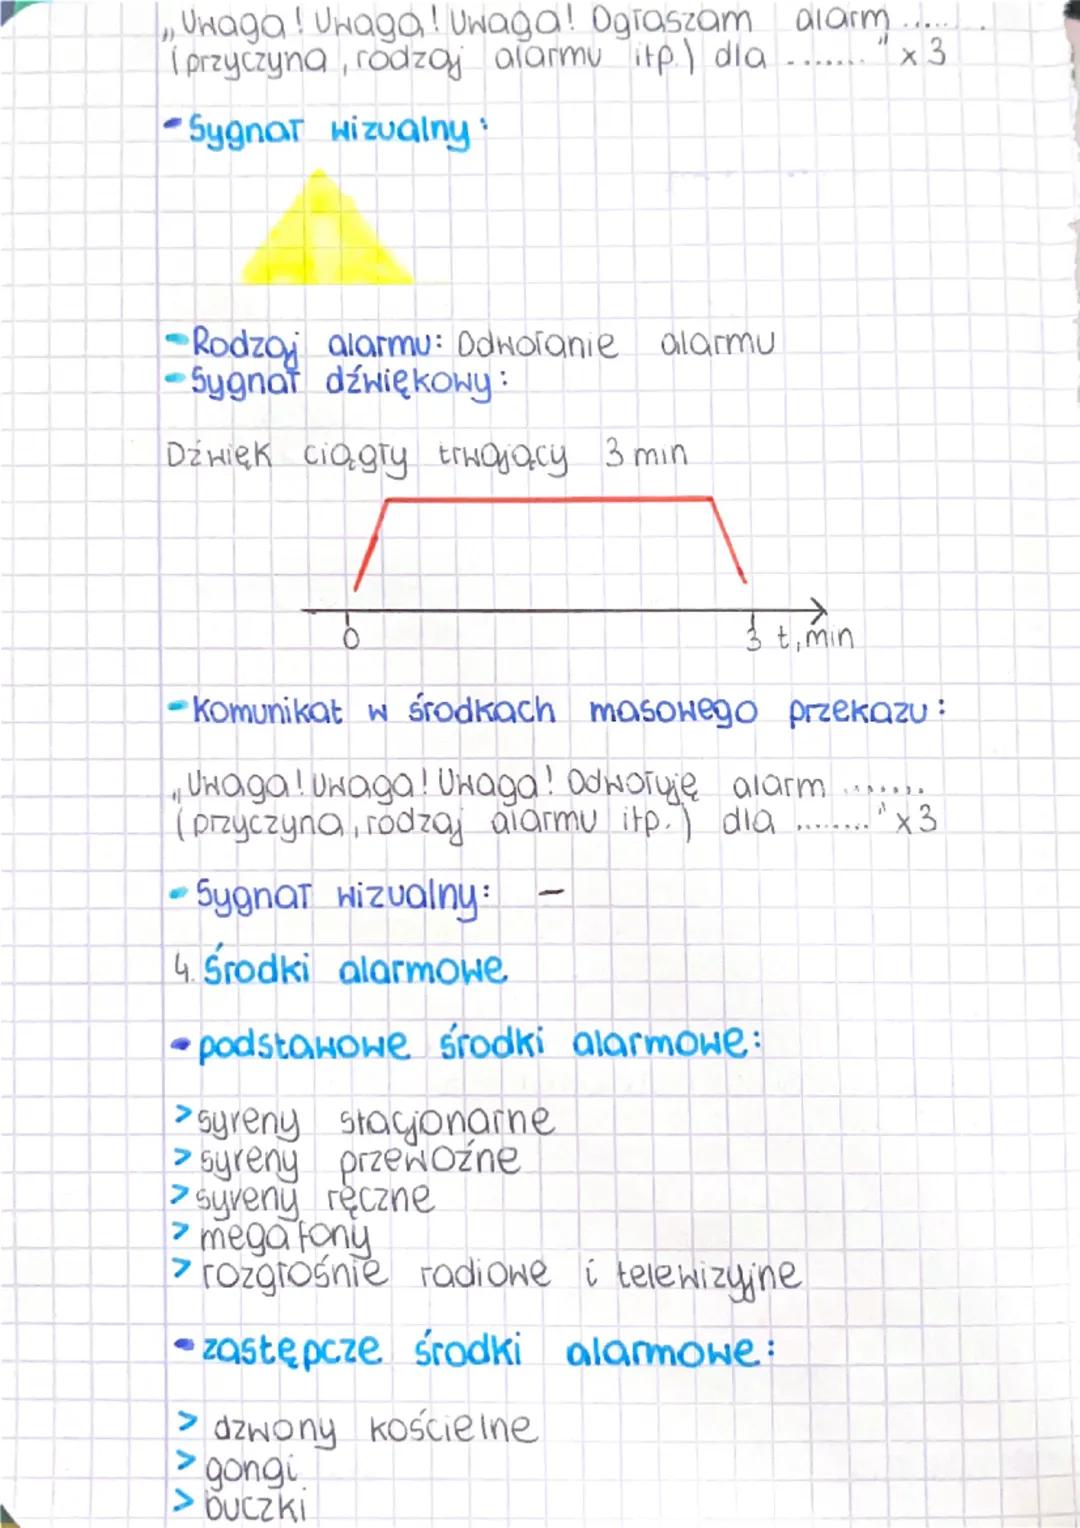 „Uwaga! Uwaga! Uwaga! Ogłaszam alarm .....
(przyczyna, rodzaj alarmu itp.) dla ......." x 3
- Sygnał wizualny:
- Rodzaj alarmu: Odwołanie alarmu
- Sygnał dźwiękowy:
Dźwięk ciągły trwający 3 min
0 3 t, min
- Komunikat w środkach masowego przekazu:
„Uwaga! Uwaga! Uwaga! Odwołuję alarm .......
(przyczyna, rodzaj alarmu itp.) dla ........" x 3
- Sygnał wizualny: -
4. Środki alarmowe
- podstawowe środki alarmowe:
> syreny stacjonarne
> syreny przewoźne
> syreny ręczne
> megafony
> rozgłośnie radiowe i telewizyjne
- zastępcze środki alarmowe:
> dzwony kościelne
> gongi
> buczki